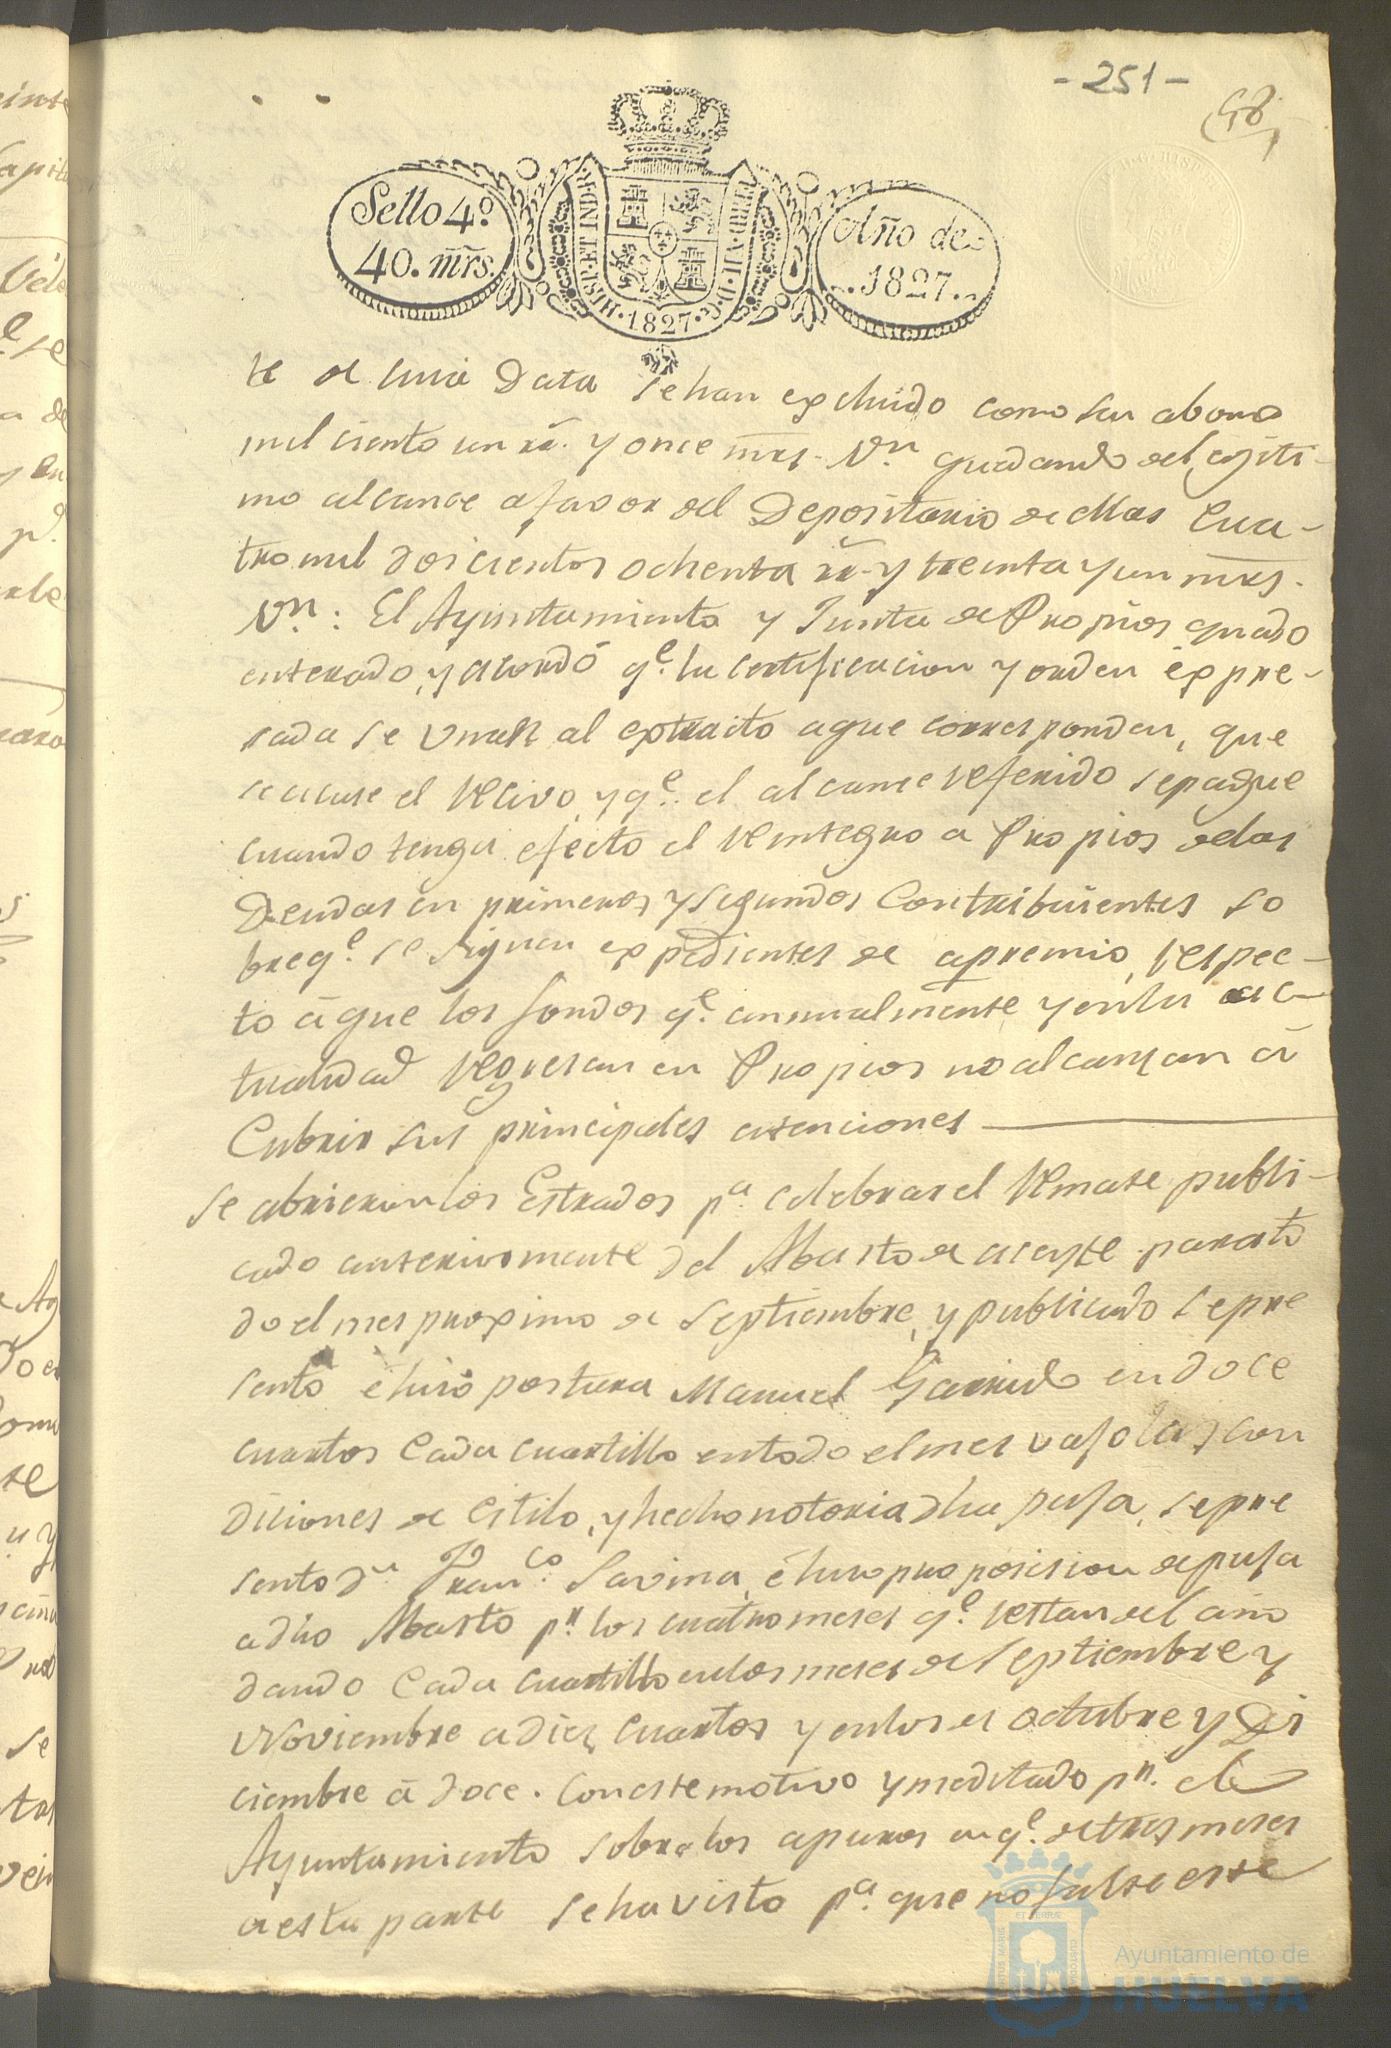 - 251 -
58
Sello 4º
40. mrs.
HISP. ET IND. R
FERD. VII. D. G.
1827.
Año de
1827.
te de cuia Data se han excluido como su abono
mil ciento un rr. y once mrs. Vn. quedando del lejiti-
mo alcance a favor del Depositario de Mas Cua-
tro mil doscientos ochenta rr. y treinta y un mrs.
Vn.: El Ayuntamiento y Junta de Propios quedo
enterado, y acordó qe. la certificacion y orden expre-
sada se unan al extracto a que corresponden, que
se acuse el recivo, y qe. el alcance referido se pague
cuando tenga efecto el reintegro a Propios de las
Deudas en primeros y segundos Contribuientes so
bre qe. se siguen expedientes de apremio, respec-
to á que los fondos qe. anualmente y en la ac-
tualidad Ygresan en Propios no alcanzan á
Cubrir sus principales atenciones
Se abrieron los Estrados pa. celebrar el Remate publi-
cado anteriormente del Abasto de aceyte para to
do el mes proximo de Septiembre, y publicado se pre
sentó é hizo postura Manuel Garrido en doce
cuartos Cada cuartillo en todo el mes vajo las con
diciones de estilo, y hecho notoria dha puja, se pre
sento Dn. Franco. Savina, é hizo proposicion de puja
a dho Abasto pr. los cuatro meses qe. restan del año
dando Cada Cuartillo en los meses de Septiembre y
Noviembre a diez cuartos y en los de octubre y Di
ciembre á doce. Con este motivo y meditado pr. el
Ayuntamiento sobre los apuros en qe. de tres meses
a esta parte se ha visto pa. que no falte este
Ayuntamiento de
HUELVA